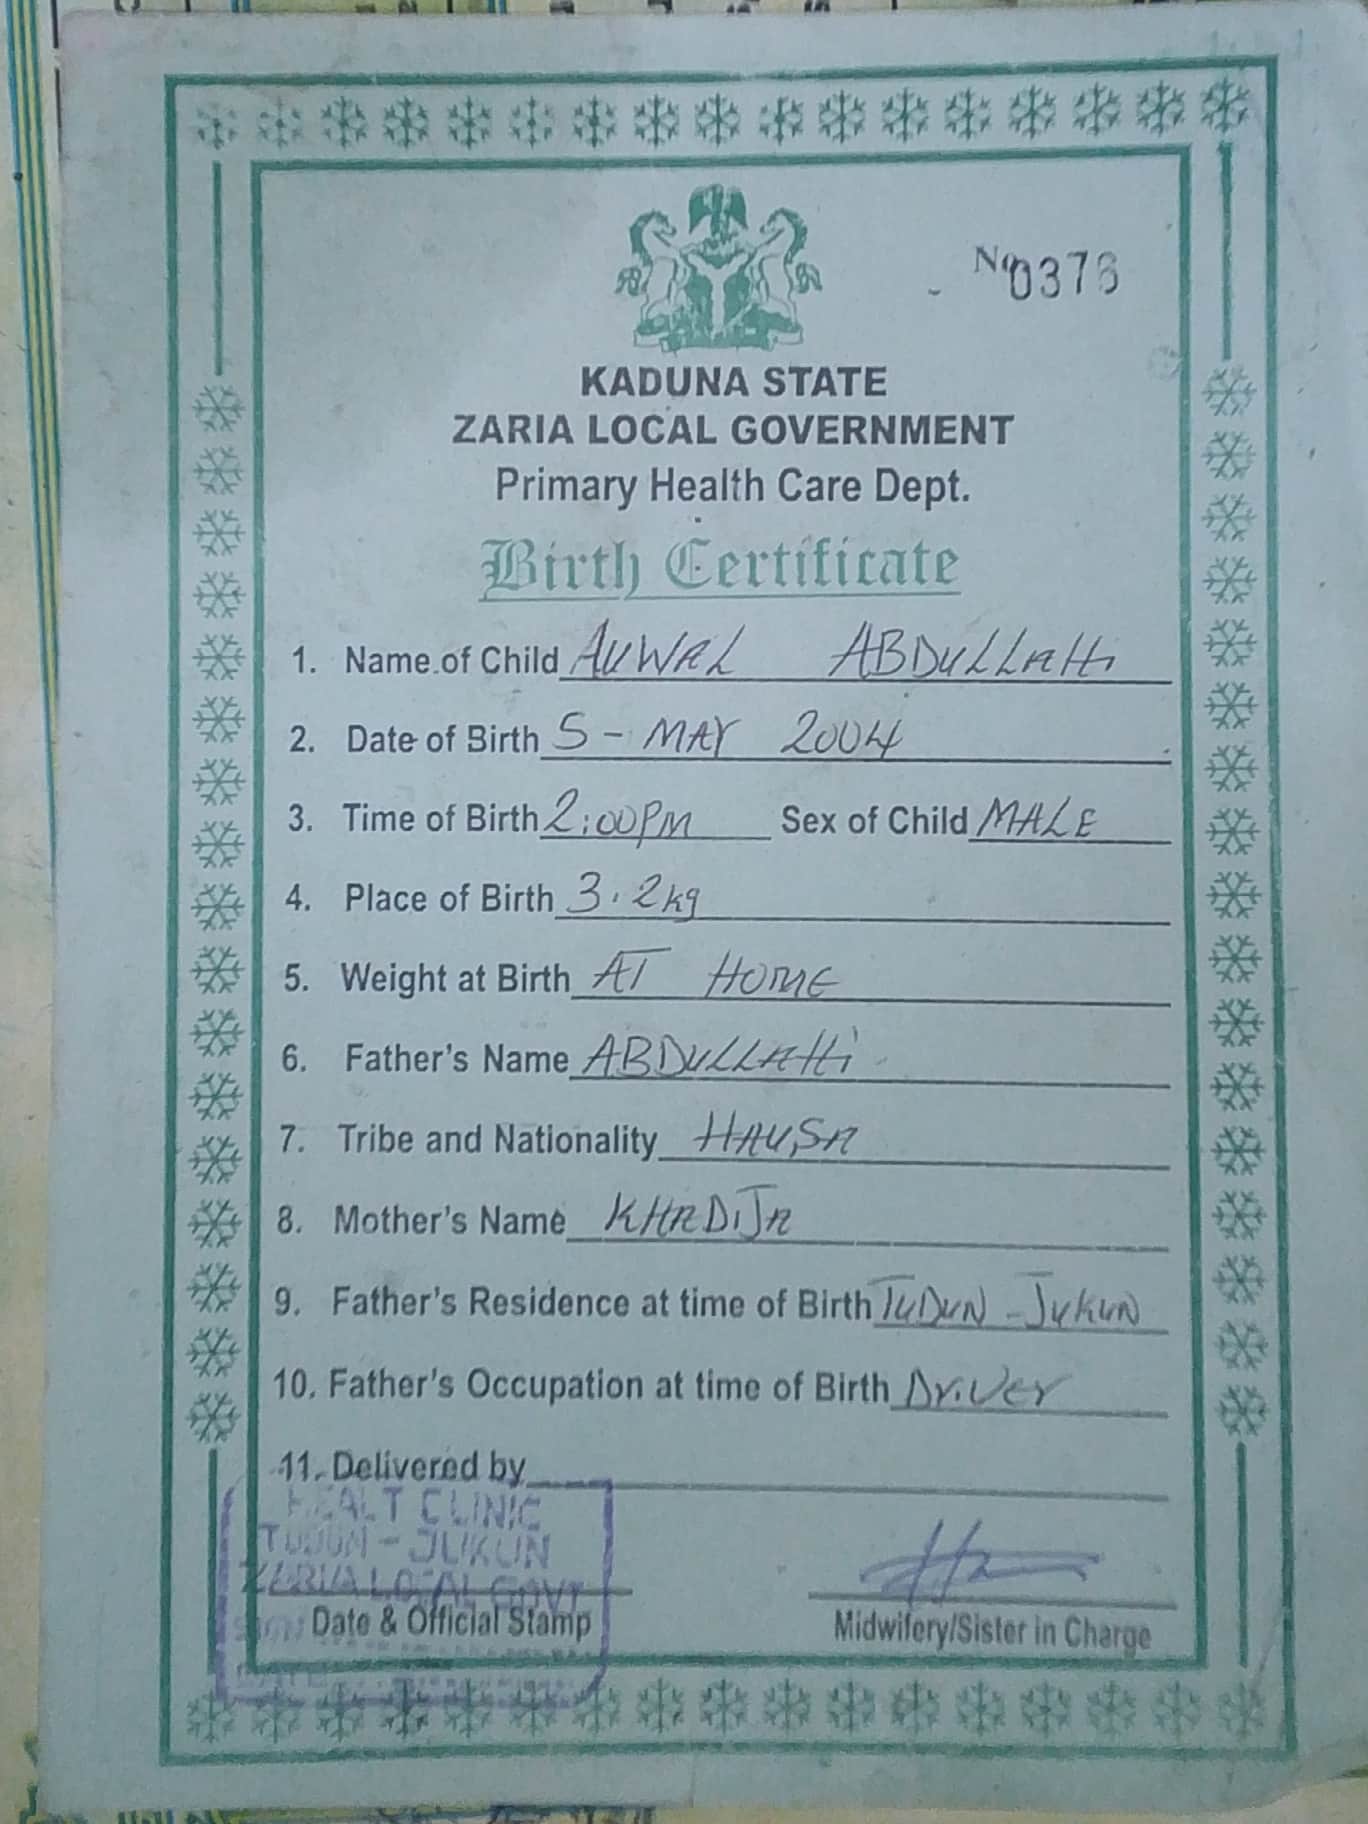 No 0376
KADUNA STATE
ZARIA LOCAL GOVERNMENT
Primary Health Care Dept.
Birth Certificate
1. Name of Child AUWAL ABDULLAHI
2. Date of Birth 5 - MAY 2004
3. Time of Birth 2:00PM Sex of Child MALE
4. Place of Birth 3.2kg
5. Weight at Birth AT HOME
6. Father's Name ABDULLAHI
7. Tribe and Nationality HAUSA
8. Mother's Name KHADIJA
9. Father's Residence at time of Birth TUDUN - JUKUN
10. Father's Occupation at time of Birth Driver
11. Delivered by
HEALT CLINIC
TUDUN - JUKUN
ZARIA LOCAL GOVT
Date & Official Stamp
Midwifery/Sister in Charge